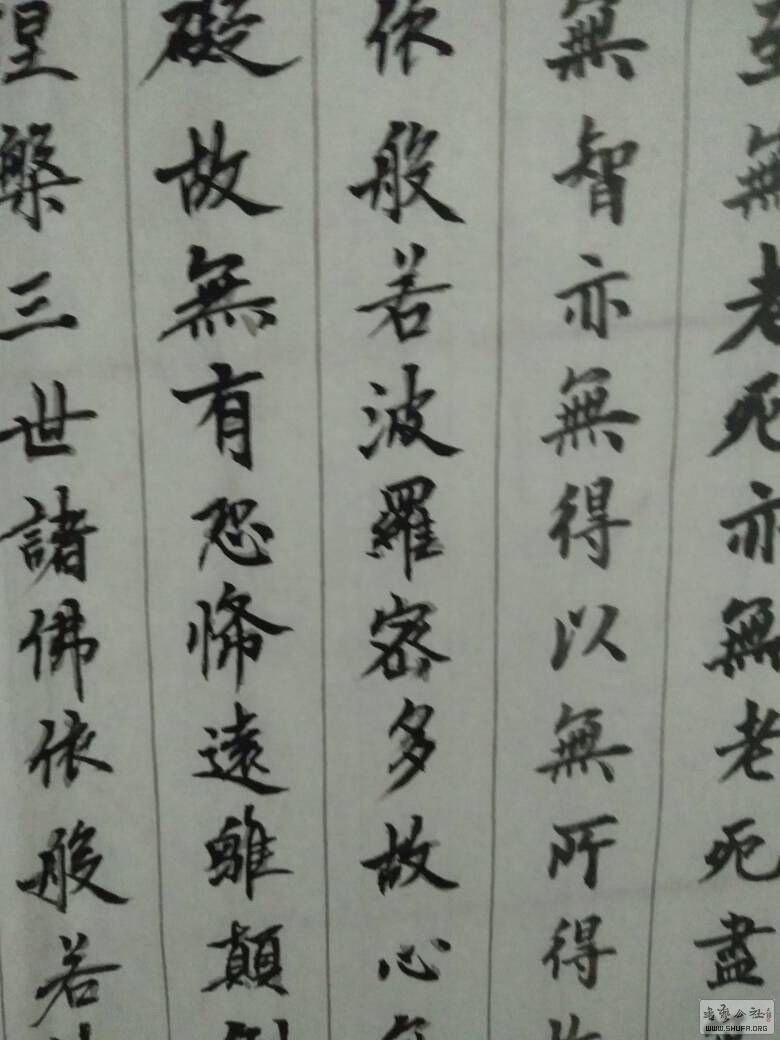 至無老死亦無老死盡
無智亦無得以無所得故
依般若波羅蜜多故心無
礙故無有恐怖遠離顛倒
涅槃三世諸佛依般若波
書藝公社
www.SHUFA.ORG